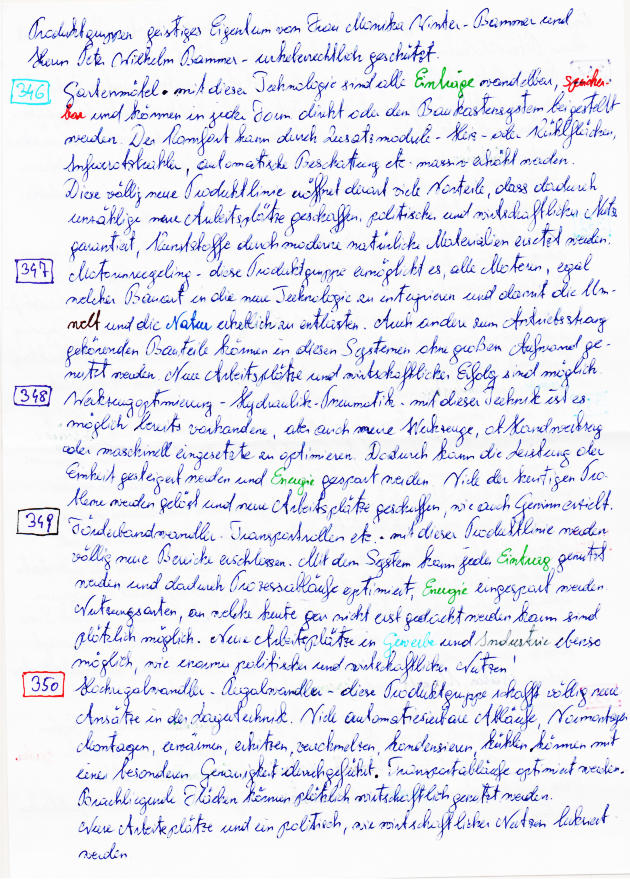 Produktgruppen geistiges Eigentum von Frau Monika Winter-Bammer und
Herrn Peter Wilhelm Bammer - urheberrechtlich geschützt.
346 Gartenmöbel - mit dieser Technologie sind alle Einträge wandelbar, speicher-
bar und können in jeder Form direkt oder den Baukastensystem beigestellt
werden. Der Komfort kann durch Zusatzmodule - Heiz- oder Kühlflächen,
Infrarotstrahler, automatische Beschattung etc. massiv erhöht werden.
Diese völlig neue Produktlinie eröffnet derart viele Vorteile, dass dadurch
unzählige neue Arbeitsplätze geschaffen, politischer und wirtschaftlicher Nutzen
garantiert, Kunststoffe durch moderne natürliche Materialien ersetzt werden.
347 Motorenregelung - diese Produktgruppe ermöglicht es, alle Motoren, egal
welcher Bauart in die neue Technologie zu integrieren und damit die Um-
welt und die Natur erheblich zu entlasten. Auch andere zum Antriebsstrang
gehörenden Bauteile können in diesen Systemen ohne großen Aufwand ge-
nutzt werden. Neue Arbeitsplätze und wirtschaftlicher Erfolg sind möglich
348 Werkzeugoptimierung - Hydraulik-Pneumatik - mit dieser Technik ist es
möglich bereits vorhandene, aber auch neue Werkzeuge, ob Handwerkzeug
oder maschinell eingesetzte zu optimieren. Dadurch kann die Leistung der
Einheit gesteigert werden und Energie gespart werden. Viele der heutigen Pro-
bleme werden gelöst und neue Arbeitsplätze geschaffen, wie auch Gewinn erzielt.
349 Förderbandwandler - Transportrollen etc. - mit dieser Produktlinie werden
völlig neue Bereiche erschlossen. Mit dem System kann jeder Eintrag genutzt
werden und dadurch Prozessabläufe optimiert, Energie eingespart werden
Nutzungsarten, an welche heute gar nicht erst gedacht werden kann sind
plötzlich möglich. Neue Arbeitsplätze in Gewerbe und Industrie ebenso
möglich, wie enorme politischer und wirtschaftlicher Nutzen!
350 Hochregalwandler - Regalwandler - diese Produktgruppe schafft völlig neue
Ansätze in der Lagertechnik. Viele automatisierbare Abläufe, Vormontagen
Montagen, erwärmen, erhitzen, verschmelzen, kondensieren, kühlen können mit
einer besonderen Genauigkeit durchgeführt. Transportabläufe optimiert werden.
Brachliegende Flächen können plötzlich wirtschaftlich genutzt werden.
Neue Arbeitsplätze und ein politisch, wie wirtschaftlicher Nutzen lukriert
werden